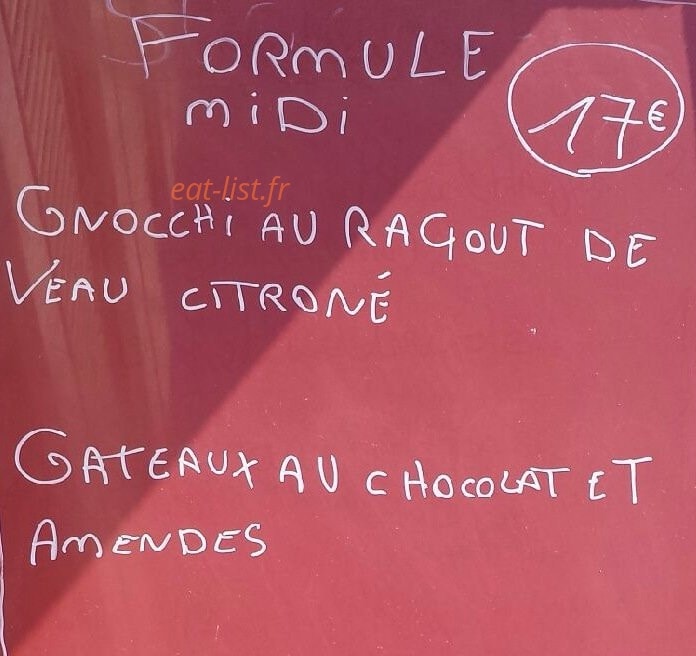 FORMULE
MIDI
17€
eat-list.fr
GNOCCHI AU RAGOUT DE
VEAU CITRONÉ
GATEAUX AU CHOCOLAT ET
AMENDES